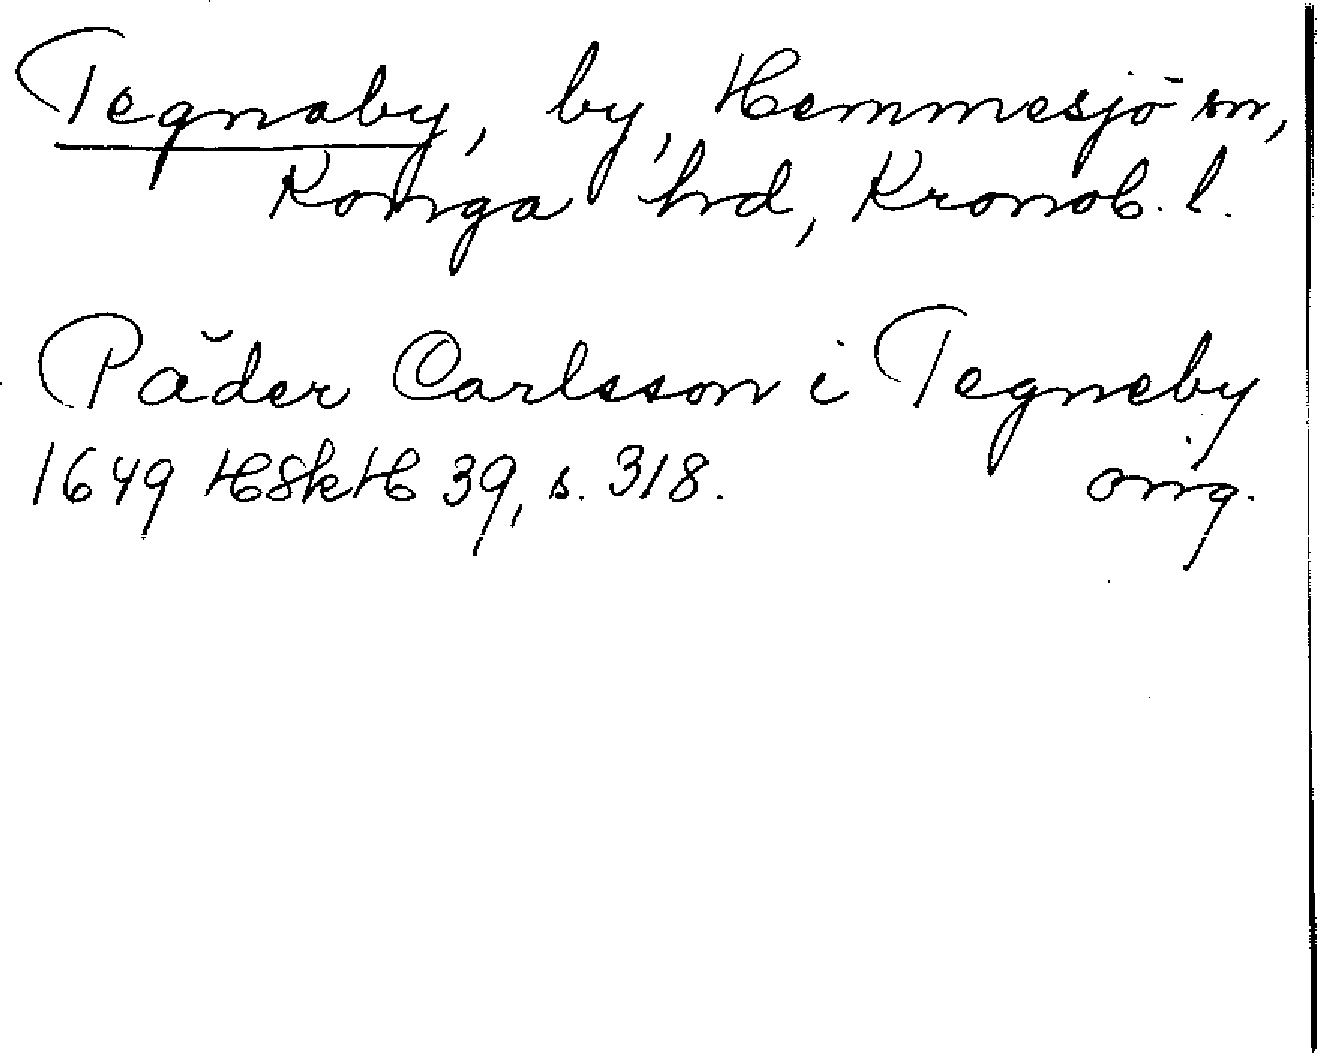 Tegnaby, by, Hemmesjö sn,
Konga hd, Kronob. l.
Päder Carlsson i Tegneby
1649 HSkH 39, s. 318. orig.